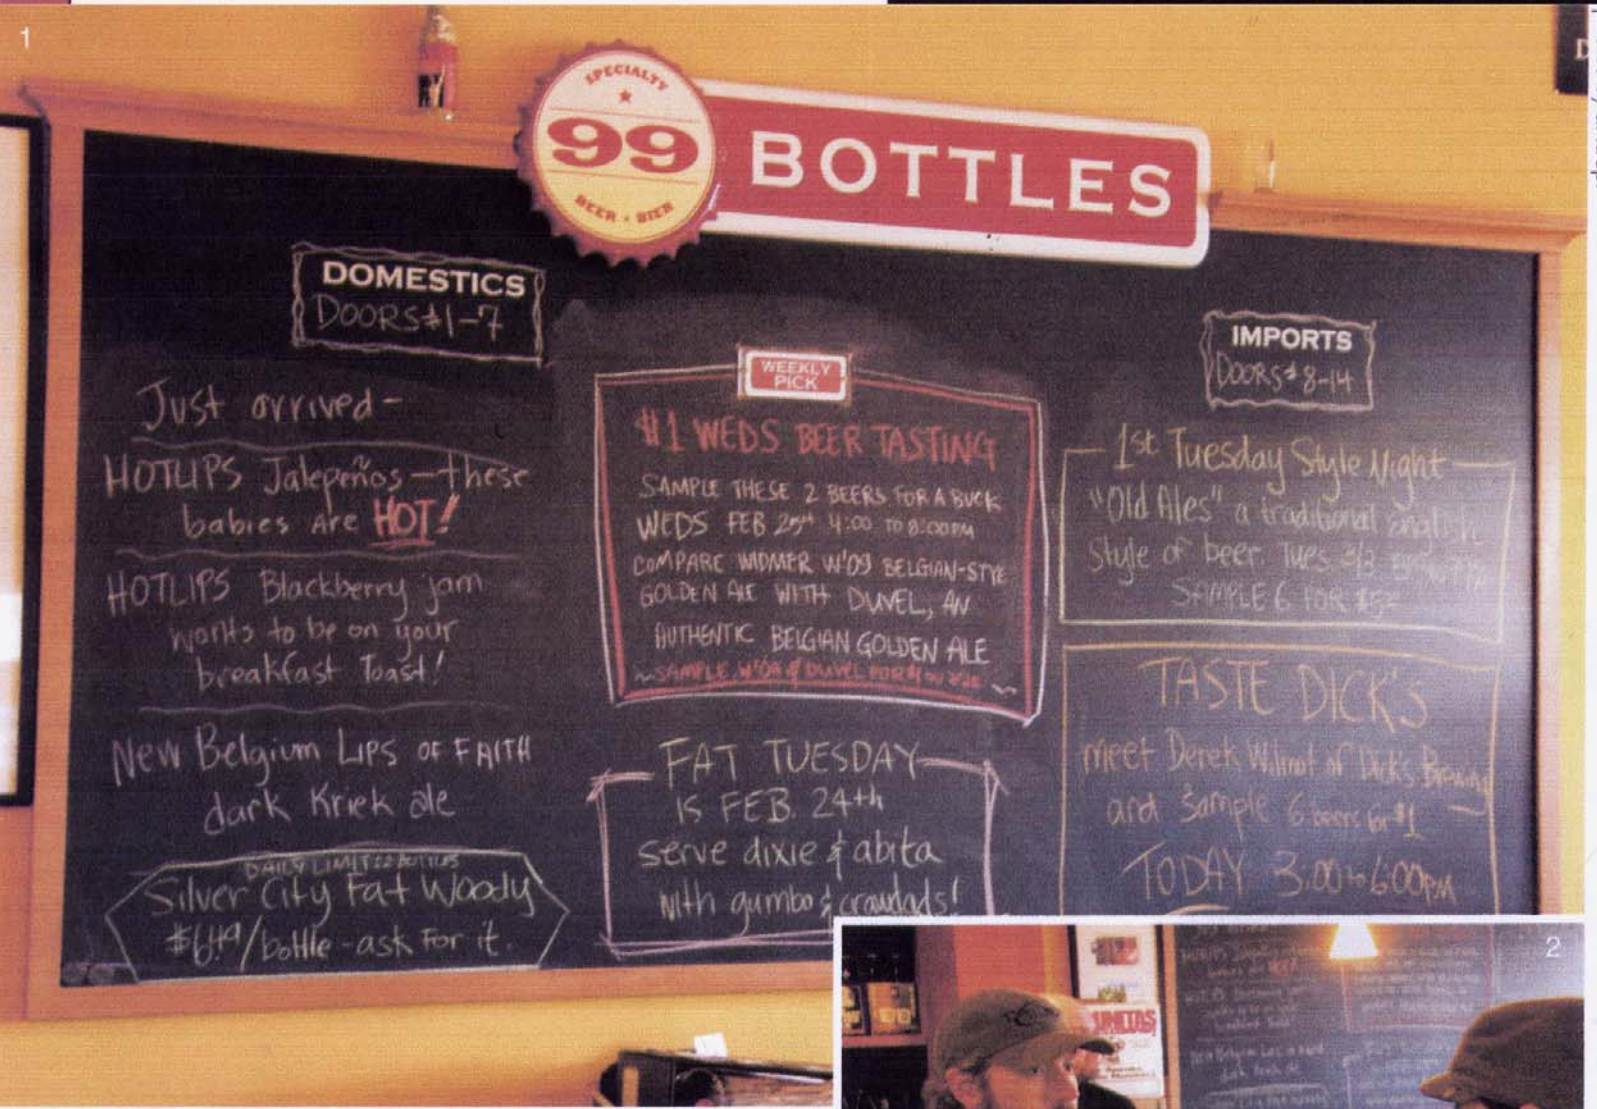 1
SPECIALTY
99
BEER • BIER
BOTTLES
DOMESTICS
DOORS #1-7
Just arrived-
HOTLIPS Jalepeños - these
babies are HOT!
HOTLIPS Blackberry jam
wants to be on your
breakfast Toast!
New Belgium LIPS OF FAITH
dark Kriek ale
DAILY LIMIT 22 BOTTLES
Silver City Fat Woody
$6.49/bottle - ask for it.
WEEKLY
PICK
#1 WEDS BEER TASTING
SAMPLE THESE 2 BEERS FOR A BUCK
WEDS FEB 25th 4:00 TO 8:00PM
COMPARE WIDMER W'09 BELGIAN-STYE
GOLDEN ALE WITH DUVEL, AN
AUTHENTIC BELGIAN GOLDEN ALE
~SAMPLE W'09 & DUVEL FOR ~
FAT TUESDAY
IS FEB. 24th
serve dixie & abita
with gumbo & crawdads!
IMPORTS
DOORS # 8-14
1st Tuesday Style Night
"Old Ales" a traditional english
style of beer. Tues 3/3
SAMPLE 6 FOR $5
TASTE DICK'S
meet Derek Wilmot of Dick's Brewing
and sample 6 beers for $1
TODAY 3:00 to 6:00PM
2
UNITAS